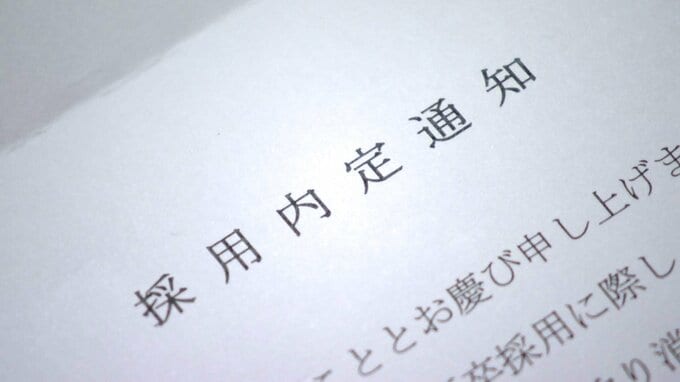 採用内定通知
こととお慶び申し上げま
卒採用に際し
り消